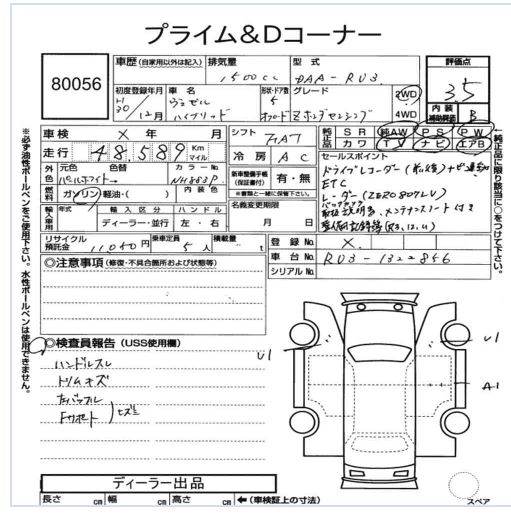 プライム&Dコーナー
80056
車歴 (自家用以外は記入)
排気量
型式
1500cc
DAA-RU3
評価点
3.5
初度登録年月
車名
形状・ドア数
グレード
H30/12月
ヴェゼル
ハイブリッド
5
Z ホンダセンシング
2WD
4WD
内装
補助評価
B
車検
× 年 月
シフト
FAT
純正品
SR 純AW PS PW
カワ TV ナビ エアB
走行
48,589 Km
マイル
冷房
AC
セールスポイント
ドライブレコーダー
ETC
レーダー
外色
元色
色替
カラーNo.
パールホワイト→
NH883P
燃料
ガソリン・軽油・( )
内装色
新車整備手帳
(保証書付)
有・無
※書類と一緒に保管下さい。
輸入車用
年式
輸入区分
ハンドル
ディーラー・並行
左・右
名義変更期限
月 日
取扱説明書、メンテナンスノート付き
リサイクル
預託金
11050円
乗車定員
5人
積載量
t
登録No.
×
車台No.
RU3-1322856
シリアルNo.
◎注意事項 (修復・不具合箇所および状態等)
◎検査員報告 (USS使用欄)
ハンドルスレ
トリムキズ
U1
U1
A1
ディーラー出品
長さ cm 幅 cm 高さ cm ←(車検証上の寸法)
スペア
※必ず油性ボールペンをご使用下さい。水性ボールペンは使用できません。
純正品に限り該当に○をつけて下さい。